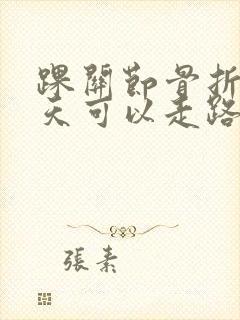 踝關節骨折
天可以走路
張素